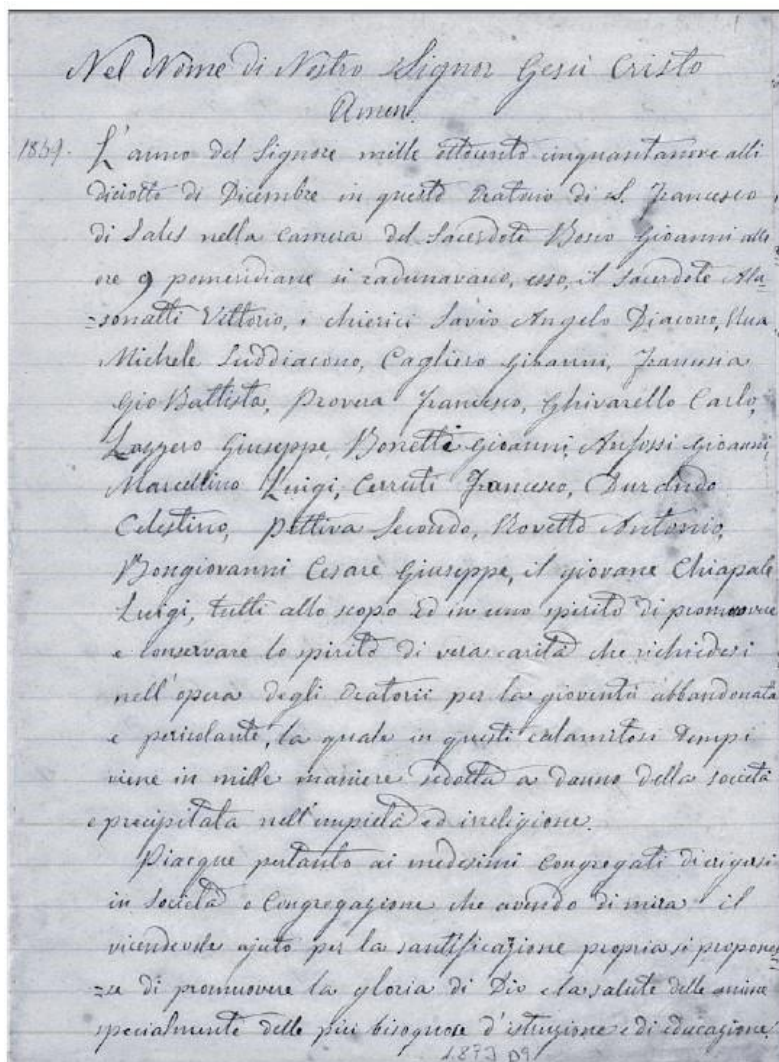 Nel Nome di Nostro Signor Gesù Cristo
Amen.
1859. L'anno del Signore mille ottocento cinquantanove alli
diciotto di Dicembre in questo Oratorio di S. Francesco
di Sales nella Camera del Sacerdote Bosco Gioanni alle
ore 9 pomeridiane si radunavano, esso, il Sacerdote Ala=
=sonatti Vittorio, i chierici Savio Angelo Diacono, Rua
Michele Suddiacono, Cagliero Gioanni, Francesia
Gio Battista, Provera Francesco, Ghivarello Carlo,
Lazzero Giuseppe, Bonetti Gioanni, Anfossi Gioanni,
Marcellino Luigi, Cerruti Francesco, Durando
Celestino, Pettiva Secondo, Rovetto Antonio,
Bongiovanni Cesare Giuseppe, il giovane Chiapale
Luigi, tutti allo scopo ed in uno spirito di promuovere
e conservare lo spirito di vera carità che richiedesi
nell'opera degli Oratorii per la gioventù abbandonata
e pericolante, la quale in questi calamitosi tempi
viene in mille maniere sedotta a danno della società
e precipitata nell'empietà ed irreligione.
Piacque pertanto ai medesimi Congregati di erigersi
in Società o Congregazione che avendo di mira il
vicendevole ajuto per la santificazione propria si propones=
=se di promuovere la gloria di Dio e la salute delle anime
specialmente delle più bisognose d'istruzione e di educazione;